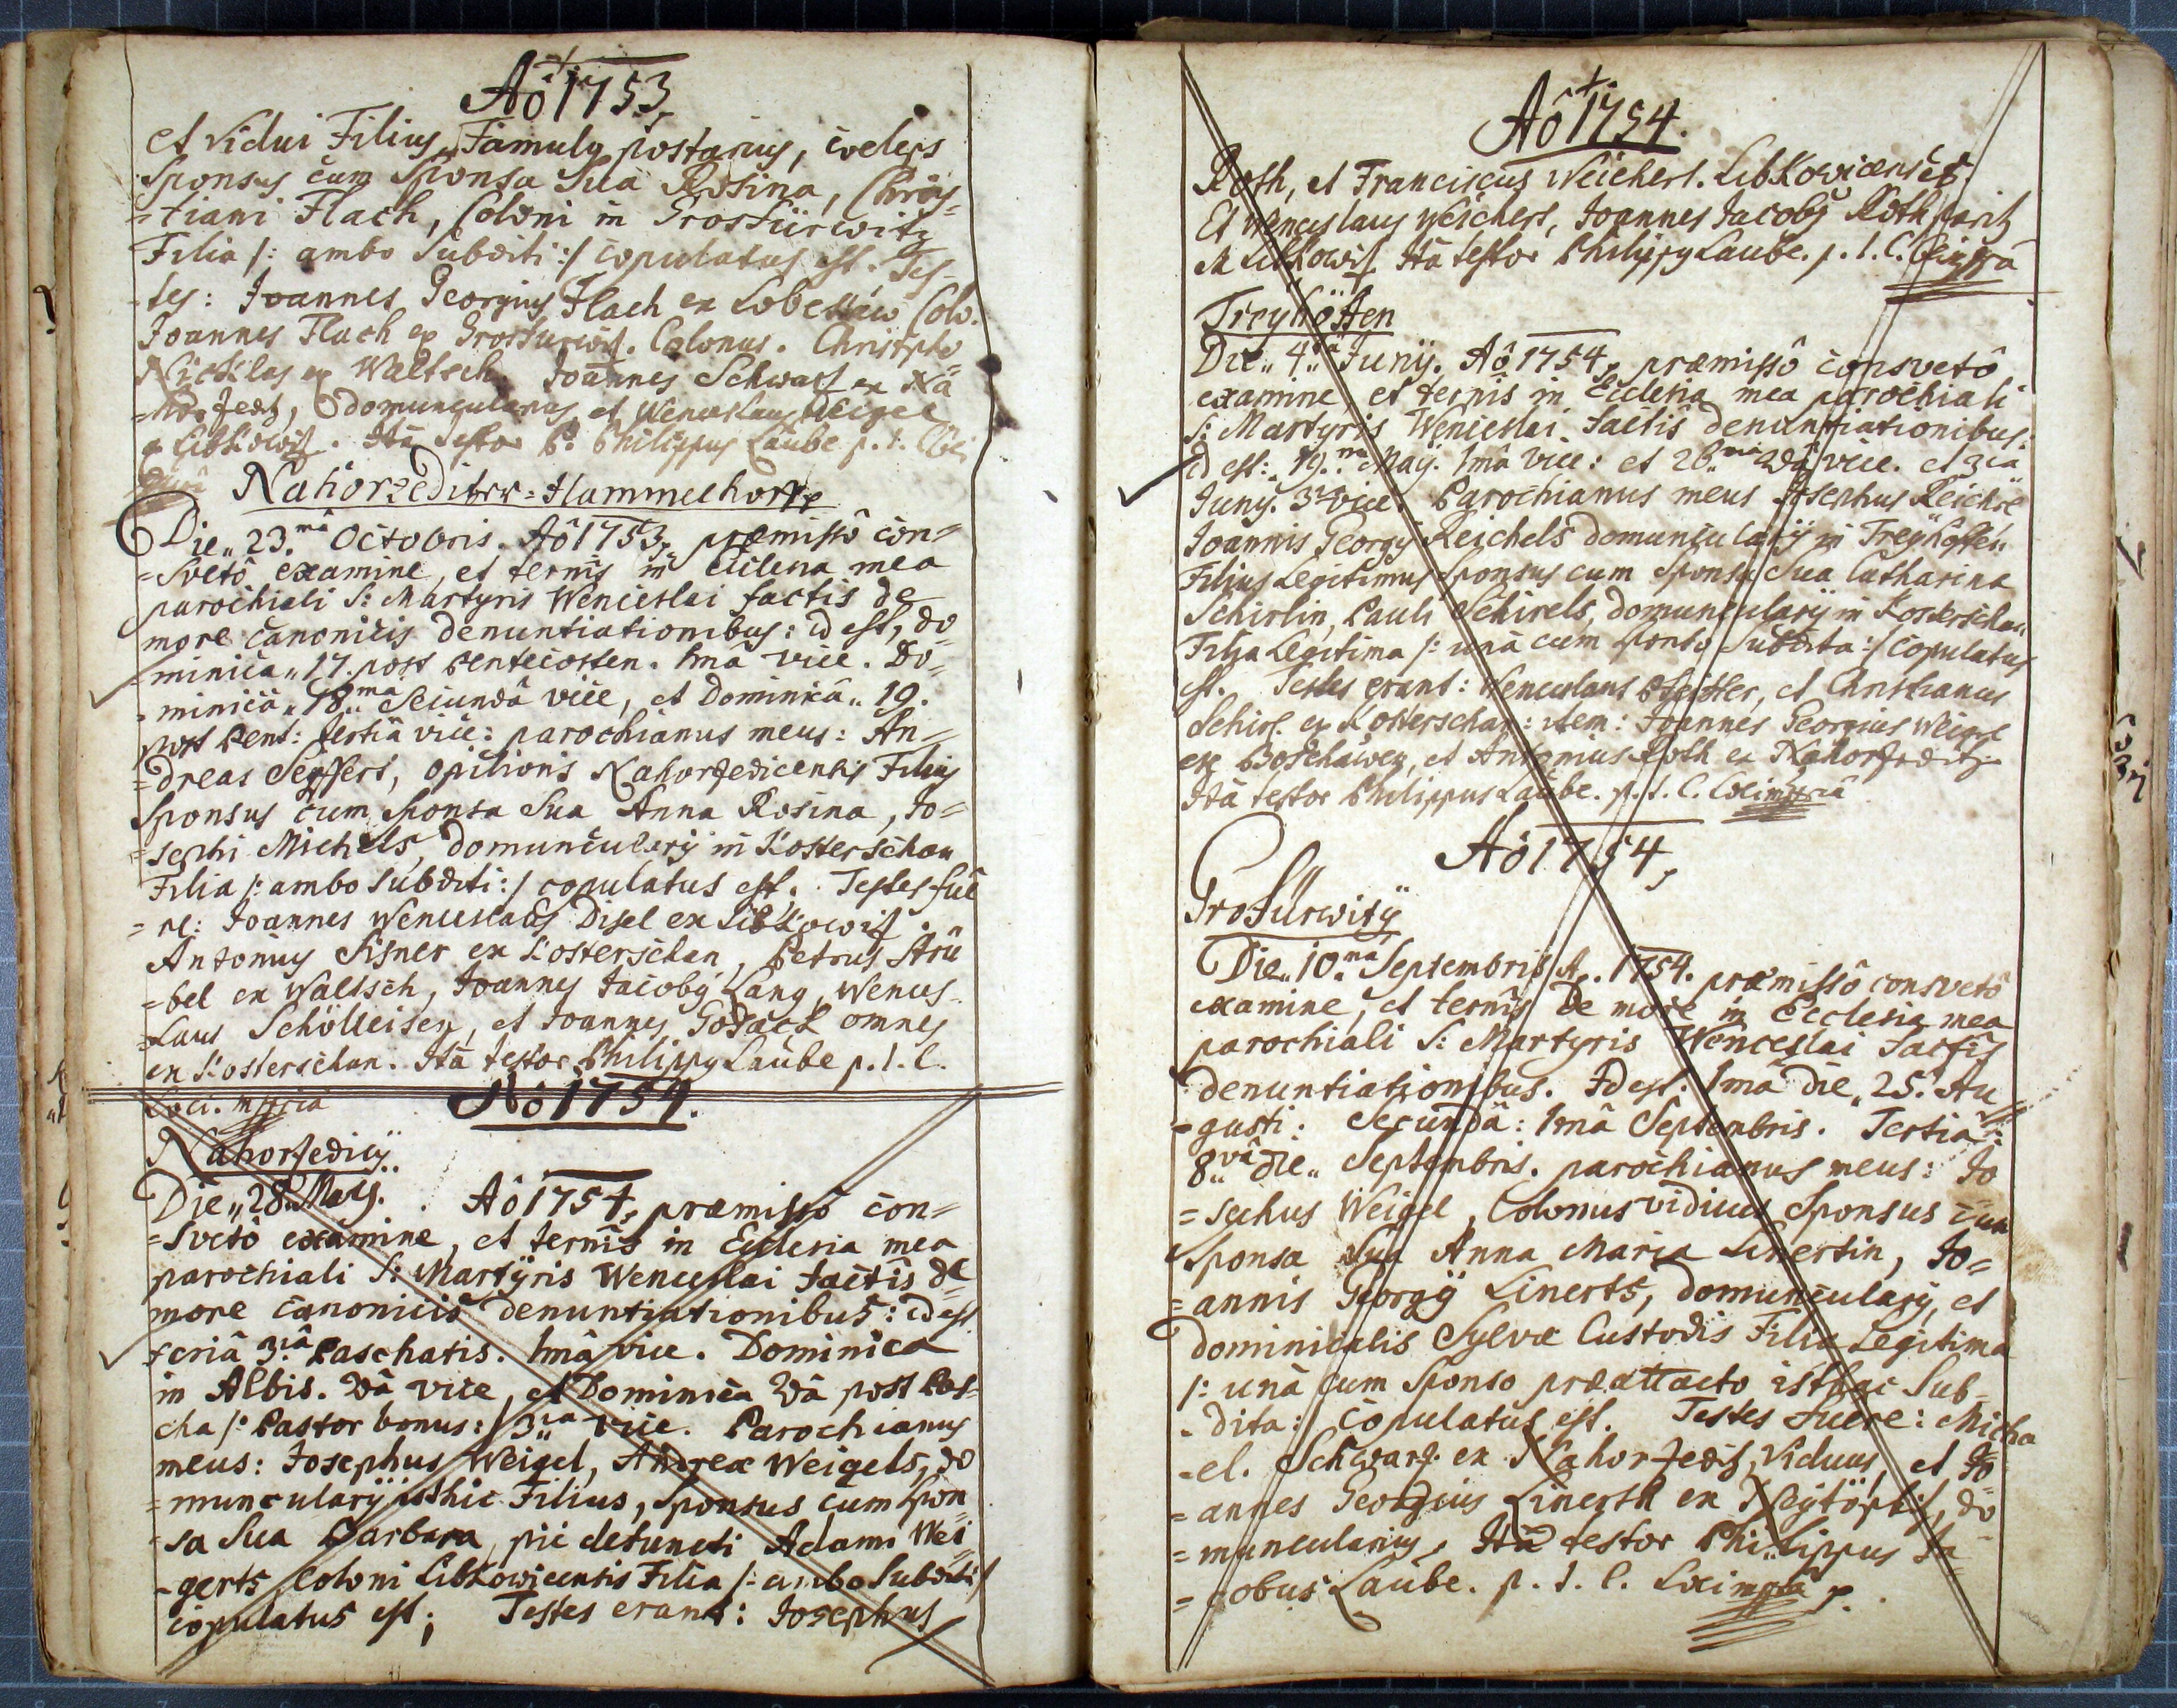 Aô 1753,
et vidui Filius, Famulus postarius, coelebs
Sponsus cum Sponsa Sua Rosina, Chris-
=tiani Flach, Coloni in Grosfürwitz
Filia /: ambo Subditi :/ copulatus est. Tes-
=tes: Joannes Georgius Flach ex Colo.
Joannes Flach ex Colonus. Christoph
ex Waltsch, Joannes Schwartz ex Na
domuncularius, et Wenceslaus Weigel
ex Libkowitz. Ità testor P. Philippus Laube p. t.
Nahorzeditzer-Hammelhoff
Die „23.mâ Octobris. Aô 1753, præmissô con=
=svetô examine, et ternis in Ecclesia mea
parochiali S: Martyris Wenceslai factis de
more canonicis denuntiationibus: id est, do
minica „17. post Pentecosten. 1mâ vice. Do-
minicâ „18.ma Secundâ vice, et Dominicâ „19.
post Pent: tertiâ vice: parochianus meus: An=
=dreas Seyffert, opilionis Nahorzedicensis Filius
Sponsus cum Sponsa Sua Anna Rosina, Jo=
=sephi Michels, domuncularij in Kosterschan
Filia /: ambo Subditi :/ copulatus est. Testes fue
=re: Joannes Wenceslaus Disel ex Libkowitz.
Antonius Eisner ex Kosterschan, Petrus Strü
=bel ex Waltsch, Joannes Jacobus Lang, Wences-
=laus Schölleisen, et Joannes Godack omnes
ex Kosterschan. Ità testor Philippus Laube p. t. C.
Loci. mppria
Aô 1754.
Nahorzedicij
Die „28. Maij. Aô 1754, præmissô con=
=svetô examine, et ternis in Ecclesia mea
parochiali S: Martÿris Wenceslai factis de
more canonicis denuntiationibus: id est
feriâ 3.iâ Paschatis. 1mâ vice. Dominica
in Albis. 2dâ vice, et Dominica 2dâ post Pas-
cha /: Pastor bonus: / 3.ia vice. Parochianus
meus: Josephus Weigel, Andreæ Weigels, do
=muncularij isthic Filius, Sponsus cum Spon
sa Sua Barbara, piè defuncti Adami Wei
=gerts Coloni Libkowicensis Filia /: ambo Subditi :/
copulatus est; Testes erant: Josephus
Aô 1754.
Roth, et Franciscus Weichert. Libkowicenses
Et Wenceslaus Weichert, Joannes Jacobus Roth
Libkowitz. Ità testor Philippus Laube. p. t. C.
Treÿhöffen
Die „4.tâ Junij. Aô 1754, præmissô consvetô
examine, et ternis in Ecclesia mea parochiali
S: Martyris Wenceslai factis denuntiationibus:
id est: 19.na Maij. 1mâ vice: et 26.ma 2dâ vice. et 2dâ
Junij. 3tia vice. Parochianus meus Josephus Reichel
Joannis Georgij Reichels domuncularij in Treÿhöffen
Filius Legitimus Sponsus cum Sponsa Sua Catharina
Schirlin, Pauli Schirels, domuncularij in Kosterschan
Filia Legitima /: unà cum Sponso Subdita :/ copulatus
est. Testes erant: Wenceslaus et Christianus
ex Kosterschan: item: Joannes Georgius Weigel
ex et Antonius Roth ex Nahorzeditz
Ità testor Philippus Laube. p. t. C. Loci mppriâ
Aô 1754,
Grosfürwitz
Die „10.ma Septembris A. 1754. præmissô consvetô
examine, et ternis De more in Ecclesia mea
parochiali S: Martyris Wenceslai factis
denuntiationibus. Id est. 1mâ die „25. Au
=gusti: Secundâ: 1mâ Septembris. Tertia:
8.vâ die „ Septembris. parochianus meus: Jo
=sephus Weigel, Colonus viduus Sponsus cum
Sponsa Sua Anna Maria Linertin, Jo=
=annis Georgÿ Linerts, domuncularij, et
dominicalis Sylvæ Custodis Filia Legitima
/: unà cum Sponso præattacto isthæc Sub-
-dita: / copulatus est. Testes fuere: Micha
-el. Schwarz. ex Nahorzeditz, Viduus, et Jo
=annes Georgius Linerth ex do
=muncularius, Ità testor Philippus Ja
=cobus Laube. p. t. C. Loci mppria